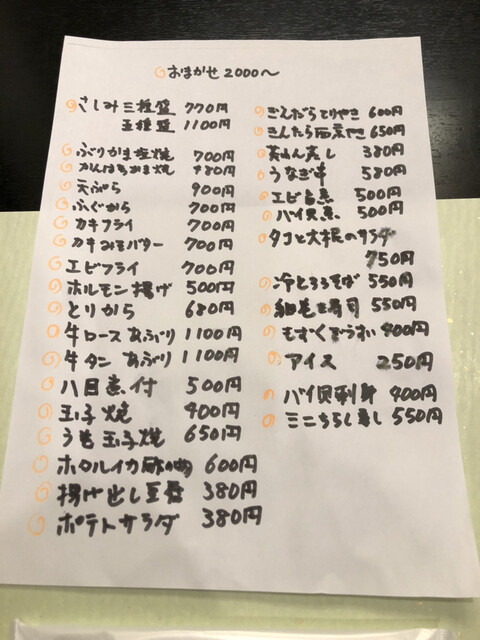 おまかせ 2000〜
さしみ三種盛 770円
五種盛 1100円
ぶりかま塩焼 700円
かんぱちかま焼 980円
天ぷら 900円
ふぐから 700円
カキフライ 700円
カキみそバター 700円
エビフライ 700円
ホルモン揚げ 500円
とりから 680円
牛ロースあぶり 1100円
牛タンあぶり 1100円
八目煮付 500円
玉子焼 400円
うな玉子焼 650円
ホタルイカ酢の物 600円
揚げ出し豆腐 380円
ポテトサラダ 380円
ぎんだらてりやき 600円
ぎんたら西京やき 650円
茶わん蒸し 380円
うなぎ串 580円
エビ旨煮 500円
バイ貝煮 500円
タコと大根のサラダ
750円
冷とろろそば 550円
細巻寿司 550円
もずくぞうすい 400円
アイス 250円
バイ貝刺身 400円
ミニちらし寿し 550円